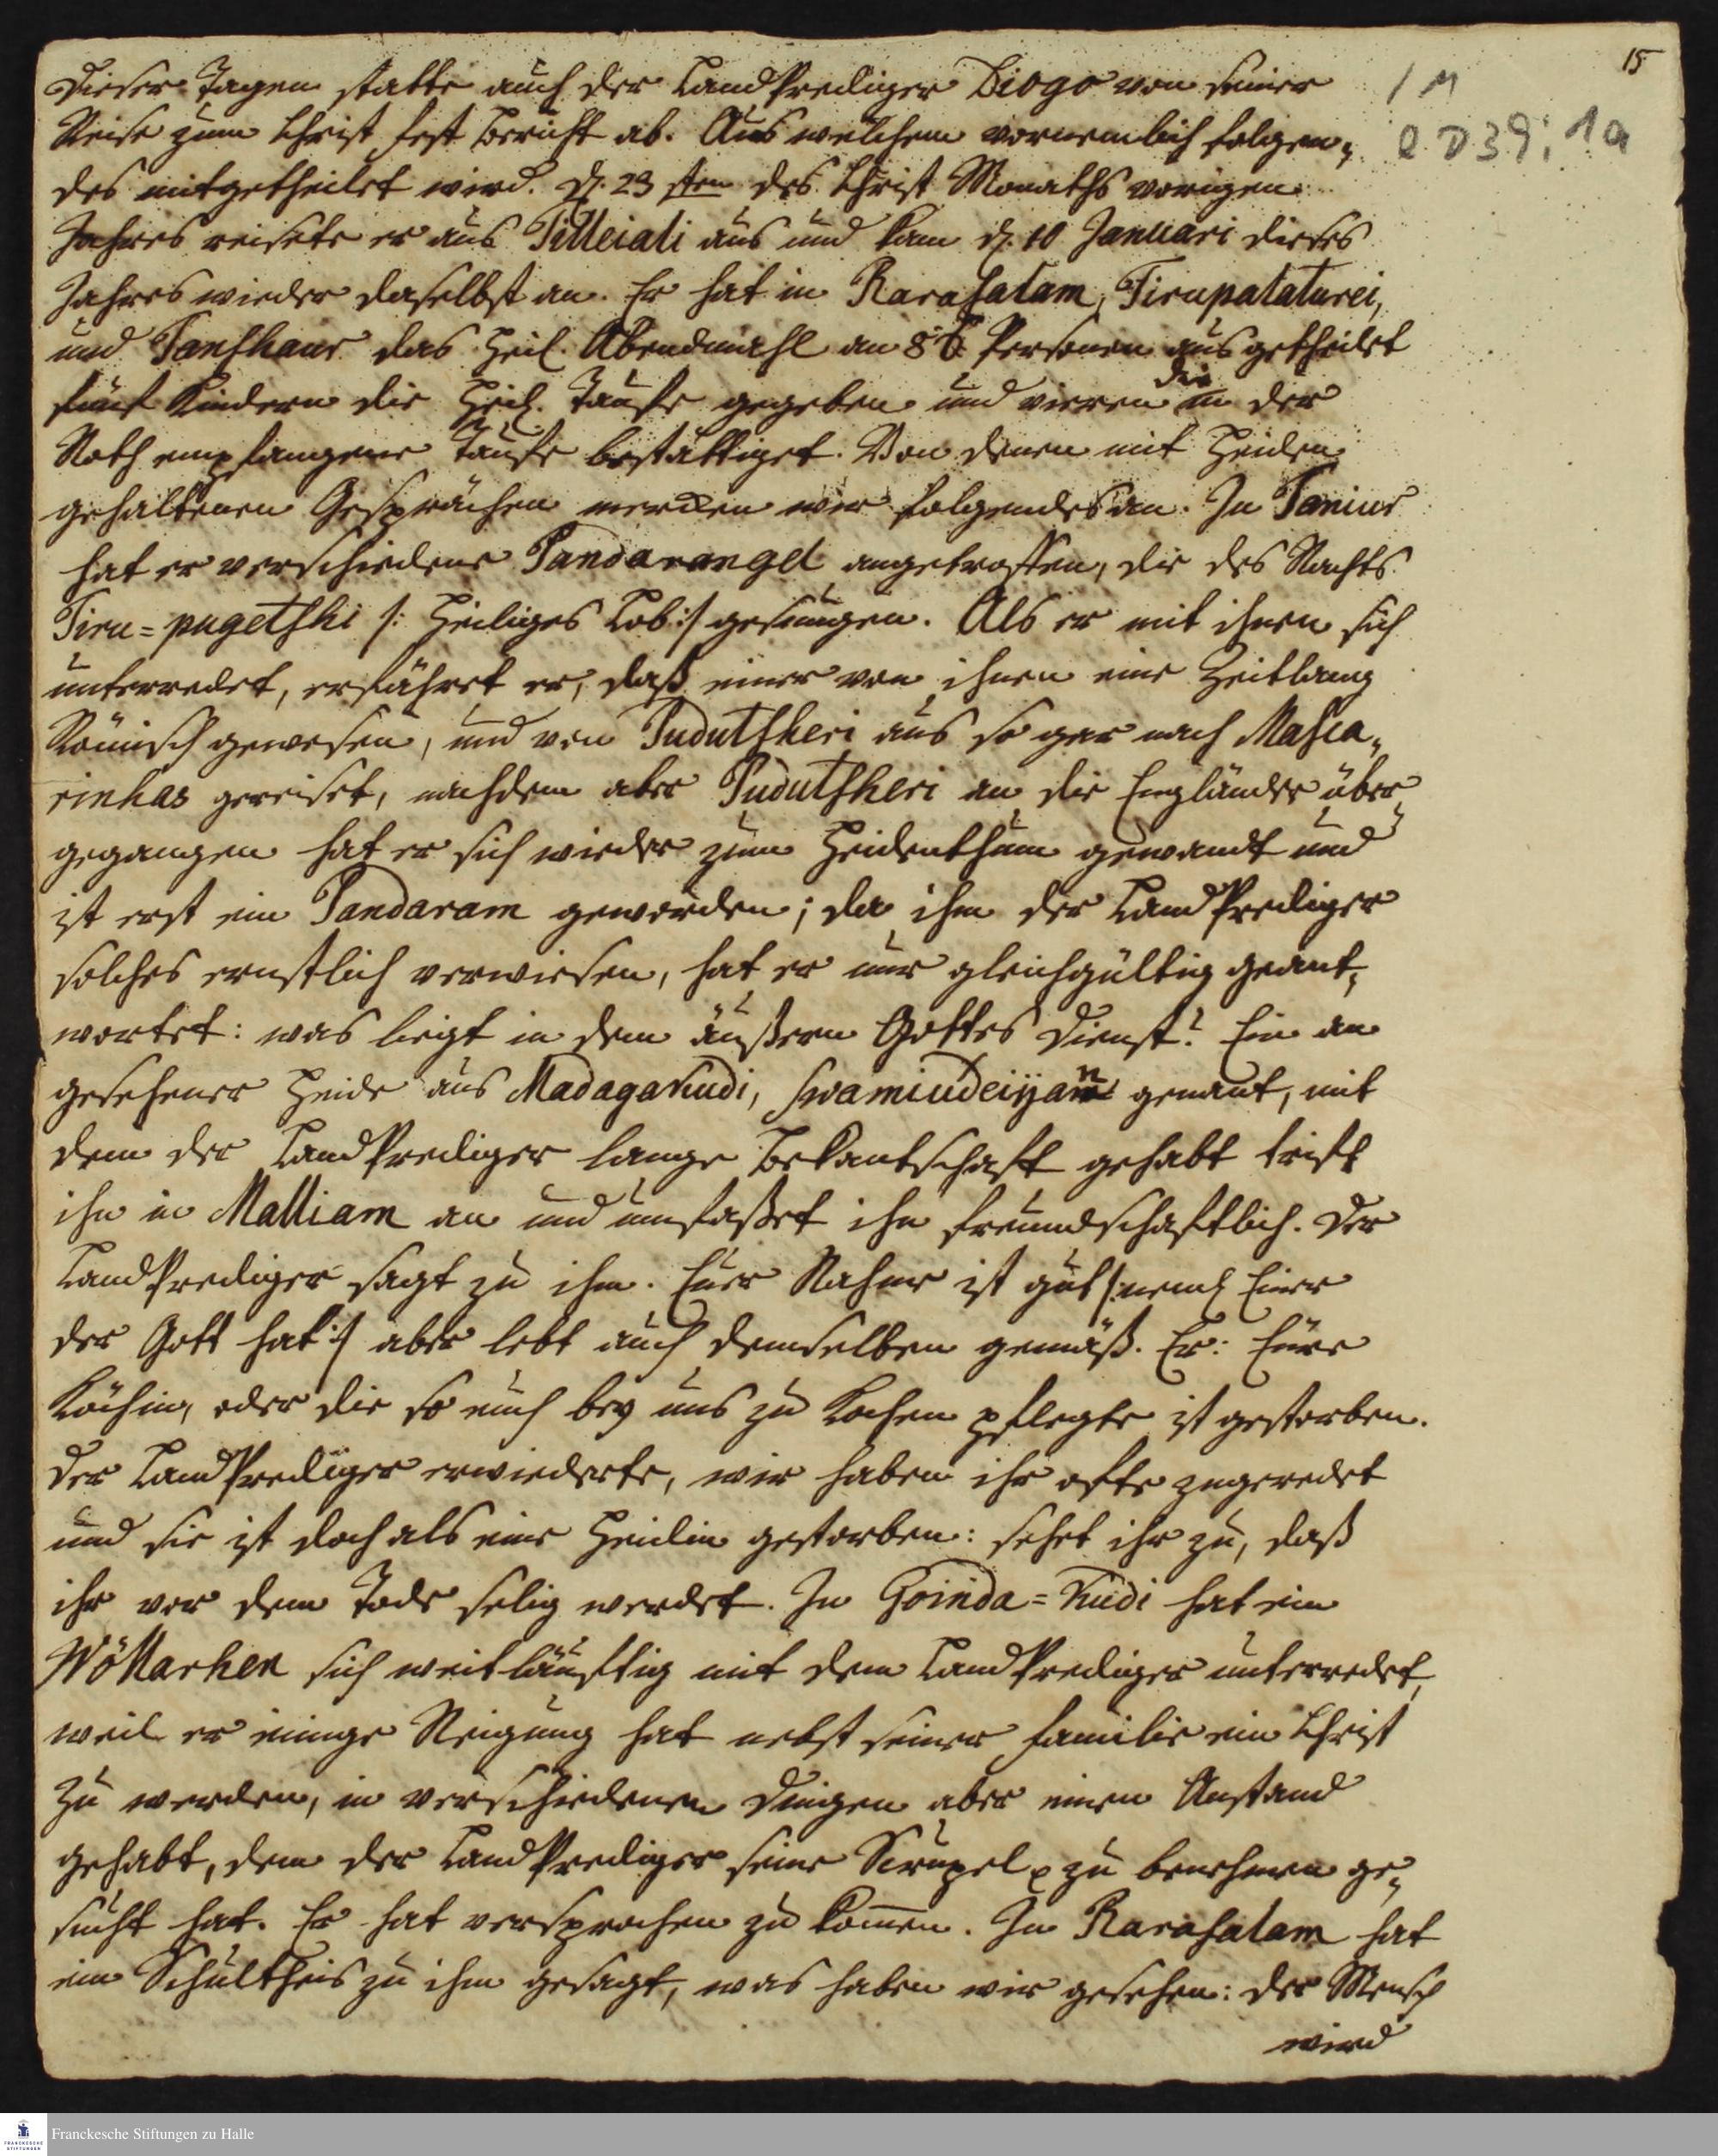 15
1 M
2 D 39; 1a
Dieser Tagen statte auch der LandPrediger Diogo von seiner
Reise zum Christ fest Bericht ab. Aus welchem vornemlich folgen„
des mitgetheilet wird. D. 23 sten des Christ Monaths vorigen
Jahres reisete er aus Tilleiali aus und kam d. 10 Januari dieses
Jahres wieder daselbst an. Er hat in Rarasalam, Tirupalaturei,
und Tanshaur das Heil. Abendmahl an Personen ausgetheilet
fünf Kindern die Heil. Taufe gegeben und vieren die in der
Noth empfangene Taufe bestättiget. Von denen mit Heiden
gehaltenen Gesprächen merken wir folgendes an. In Taniur
hat er verschiedene Pandarangel angetroffen, die des Nachts
Tiru=pugetshi /: Heiliges Lob :/ gesungen. Als er mit ihnen sich
unterredet, erfähret er, daß einer von ihnen eine Zeitlang
Römisch gewesen, und von Pudutsheri aus so gar nach Masca„
rinhas gereiset, nachdem aber Pudutsheri an die Engländer über„
gegangen hat er sich wieder zum Heidenthum gewandt und
ist erst ein Pandaram geworden; da ihm der LandPrediger
solches ernstlich verwiesen, hat er nur gleichgültig geant„
wortet: was liegt in dem äußern Gottes Dienst? Ein an
gesehener Heide aus Madagakudi, Swamiudeiyan genant, mit
dem der LandPrediger lange Bekantschaft gehabt trift
ihn in Malliam an und umfaßet ihn freundschaftlich. Der
LandPrediger sagt zu ihm. Euer Nahme ist gut /: neml Einer
der Gott hat :/ aber lebt auch demselben gemäß. Er: Eure
Köchin, oder die so euch bey uns zu kochen pflegte ist gestorben.
Der LandPrediger erwiederte, wir haben ihr ofte zugeredet
und sie ist doch als eine Heidin gestorben: sehet ihr zu, daß
ihr vor dem Tode selig werdet. In Goinda=kudi hat ein
Wöllarhen sich weitläuftig mit dem LandPrediger unterredet,
weil er einige Neigung hat nebst seiner Familie ein Christ
zu werden, in verschiedenen Dingen aber einen Anstand
gehabt, dem der LandPrediger seine Scrupel zu benehmen ge„
sucht hat. Er hat versprochen zu kom̅en. In Rarasalam hat
ein Schultheis zu ihm gesagt, was haben wir gesehen: der Mensch
wird
FRANCKESCHE STIFTUNGEN
Franckesche Stiftungen zu Halle